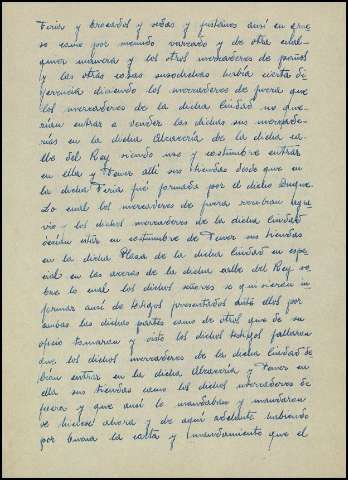 Feria y brocados y sedas y fustanes ansi en que
so como por menudo vareado y de otra cual-
quier manera y los otros mercaderes de paños
y las otras cosas susodichas había cierta di
ferencia diciendo los mercaderes de fuera que
los mercaderes de la dicha Ciudad no que-
rían entrar a vender las dichas sus mercade-
rías en la dicha Alcaicería de la dicha ca-
lle del Rey siendo uso y costumbre entrar
en ella y Tener allí sus tiendas desde que en
la dicha Feria fué formada por el dicho Duque.
Lo cual los mercaderes de fuera recibían agra
vio y los dichos mercaderes de la dicha Ciudad
decían estar en costumbre de Tener sus tiendas
en la dicha Plaza de la dicha Ciudad en espe-
cial en las aceras de la dicha calle del Rey so
bre lo cual los dichos señores se quisieron in
formar ansi de testigos presentados ante ellos por
ambas las dichas partes como de otros que de su
oficio tomaron y visto los dichos testigos fallaron
que los dichos mercaderes de la dicha Ciudad de
bían entrar en la dicha Alcaicería y Tener en
ella sus tiendas como los dichos mercaderes de
fuera y que ansi lo mandaban y mandaron
se hiciese ahora y de aquí adelante habiendo
por buena la carta y mandamiento que el